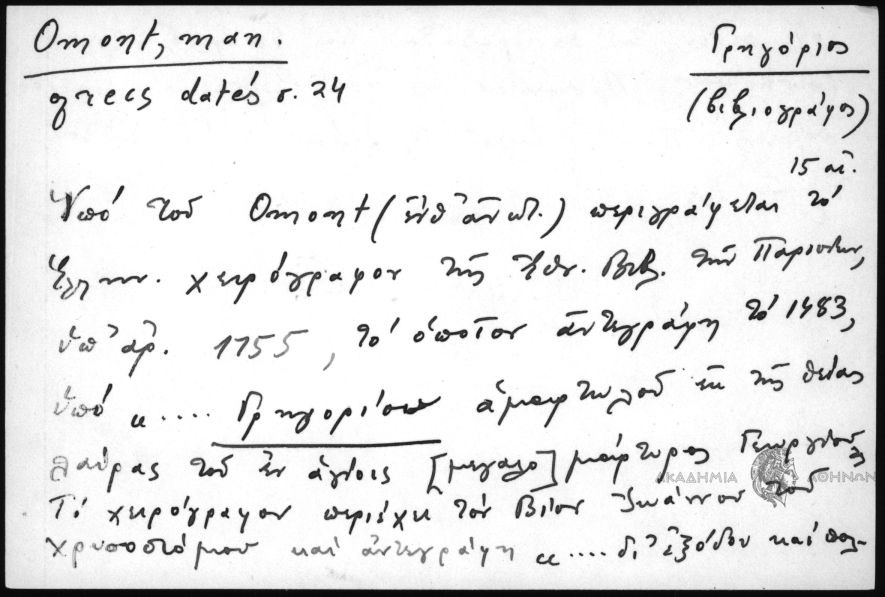 Omont, man.
grecs datés σ. 24
Γρηγόριος
(βιβλιογράφος)
15 αἰ.
Ὑπό τοῦ Omont (ἔνθ' ἀνωτ.) περιγράφεται τό
Ἑλλην. χειρόγραφον τῆς Ἐθν. Βιβλ. τῶν Παρισίων,
ὑπ' ἀρ. 1755, τό ὁποῖον ἀντεγράφη τό 1483,
ὑπό «.... Γρηγορίου ἁμαρτωλοῦ ἐκ τῆς θείας
λαύρας τοῦ ἐν ἁγίοις [μεγαλο]μάρτυρος Γεωργίου»
Τό χειρόγραφον περιέχει τόν Βίον Ἰωάννου τοῦ
Χρυσοστόμου καί ἀντεγράφη «.... δι' ἐξόδου καί πολ-
ΑΚΑΔΗΜΙΑ ΑΘΗΝΩΝ